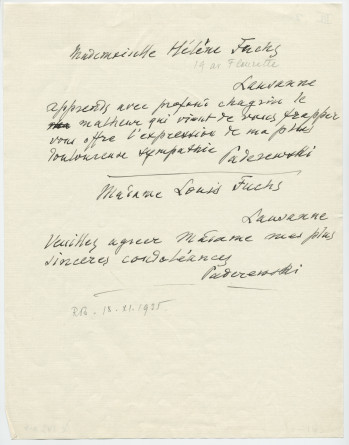 Mademoiselle Hélène Fuchs
19 av Fleurette
Lausanne
apprends avec profond chagrin le
malheur qui vient de vous frapper
vous offre l'expression de ma plus
douloureuse sympathie Paderewski
Madame Louis Fuchs
Lausanne
Veuillez agréer Madame mes plus
sincères condoléances
Paderewski
18.XI.1925